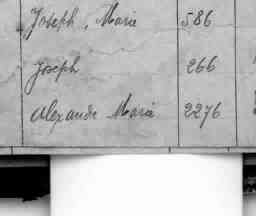 Joseph, Marie 586
Joseph 266
Alexandre Marie 2276